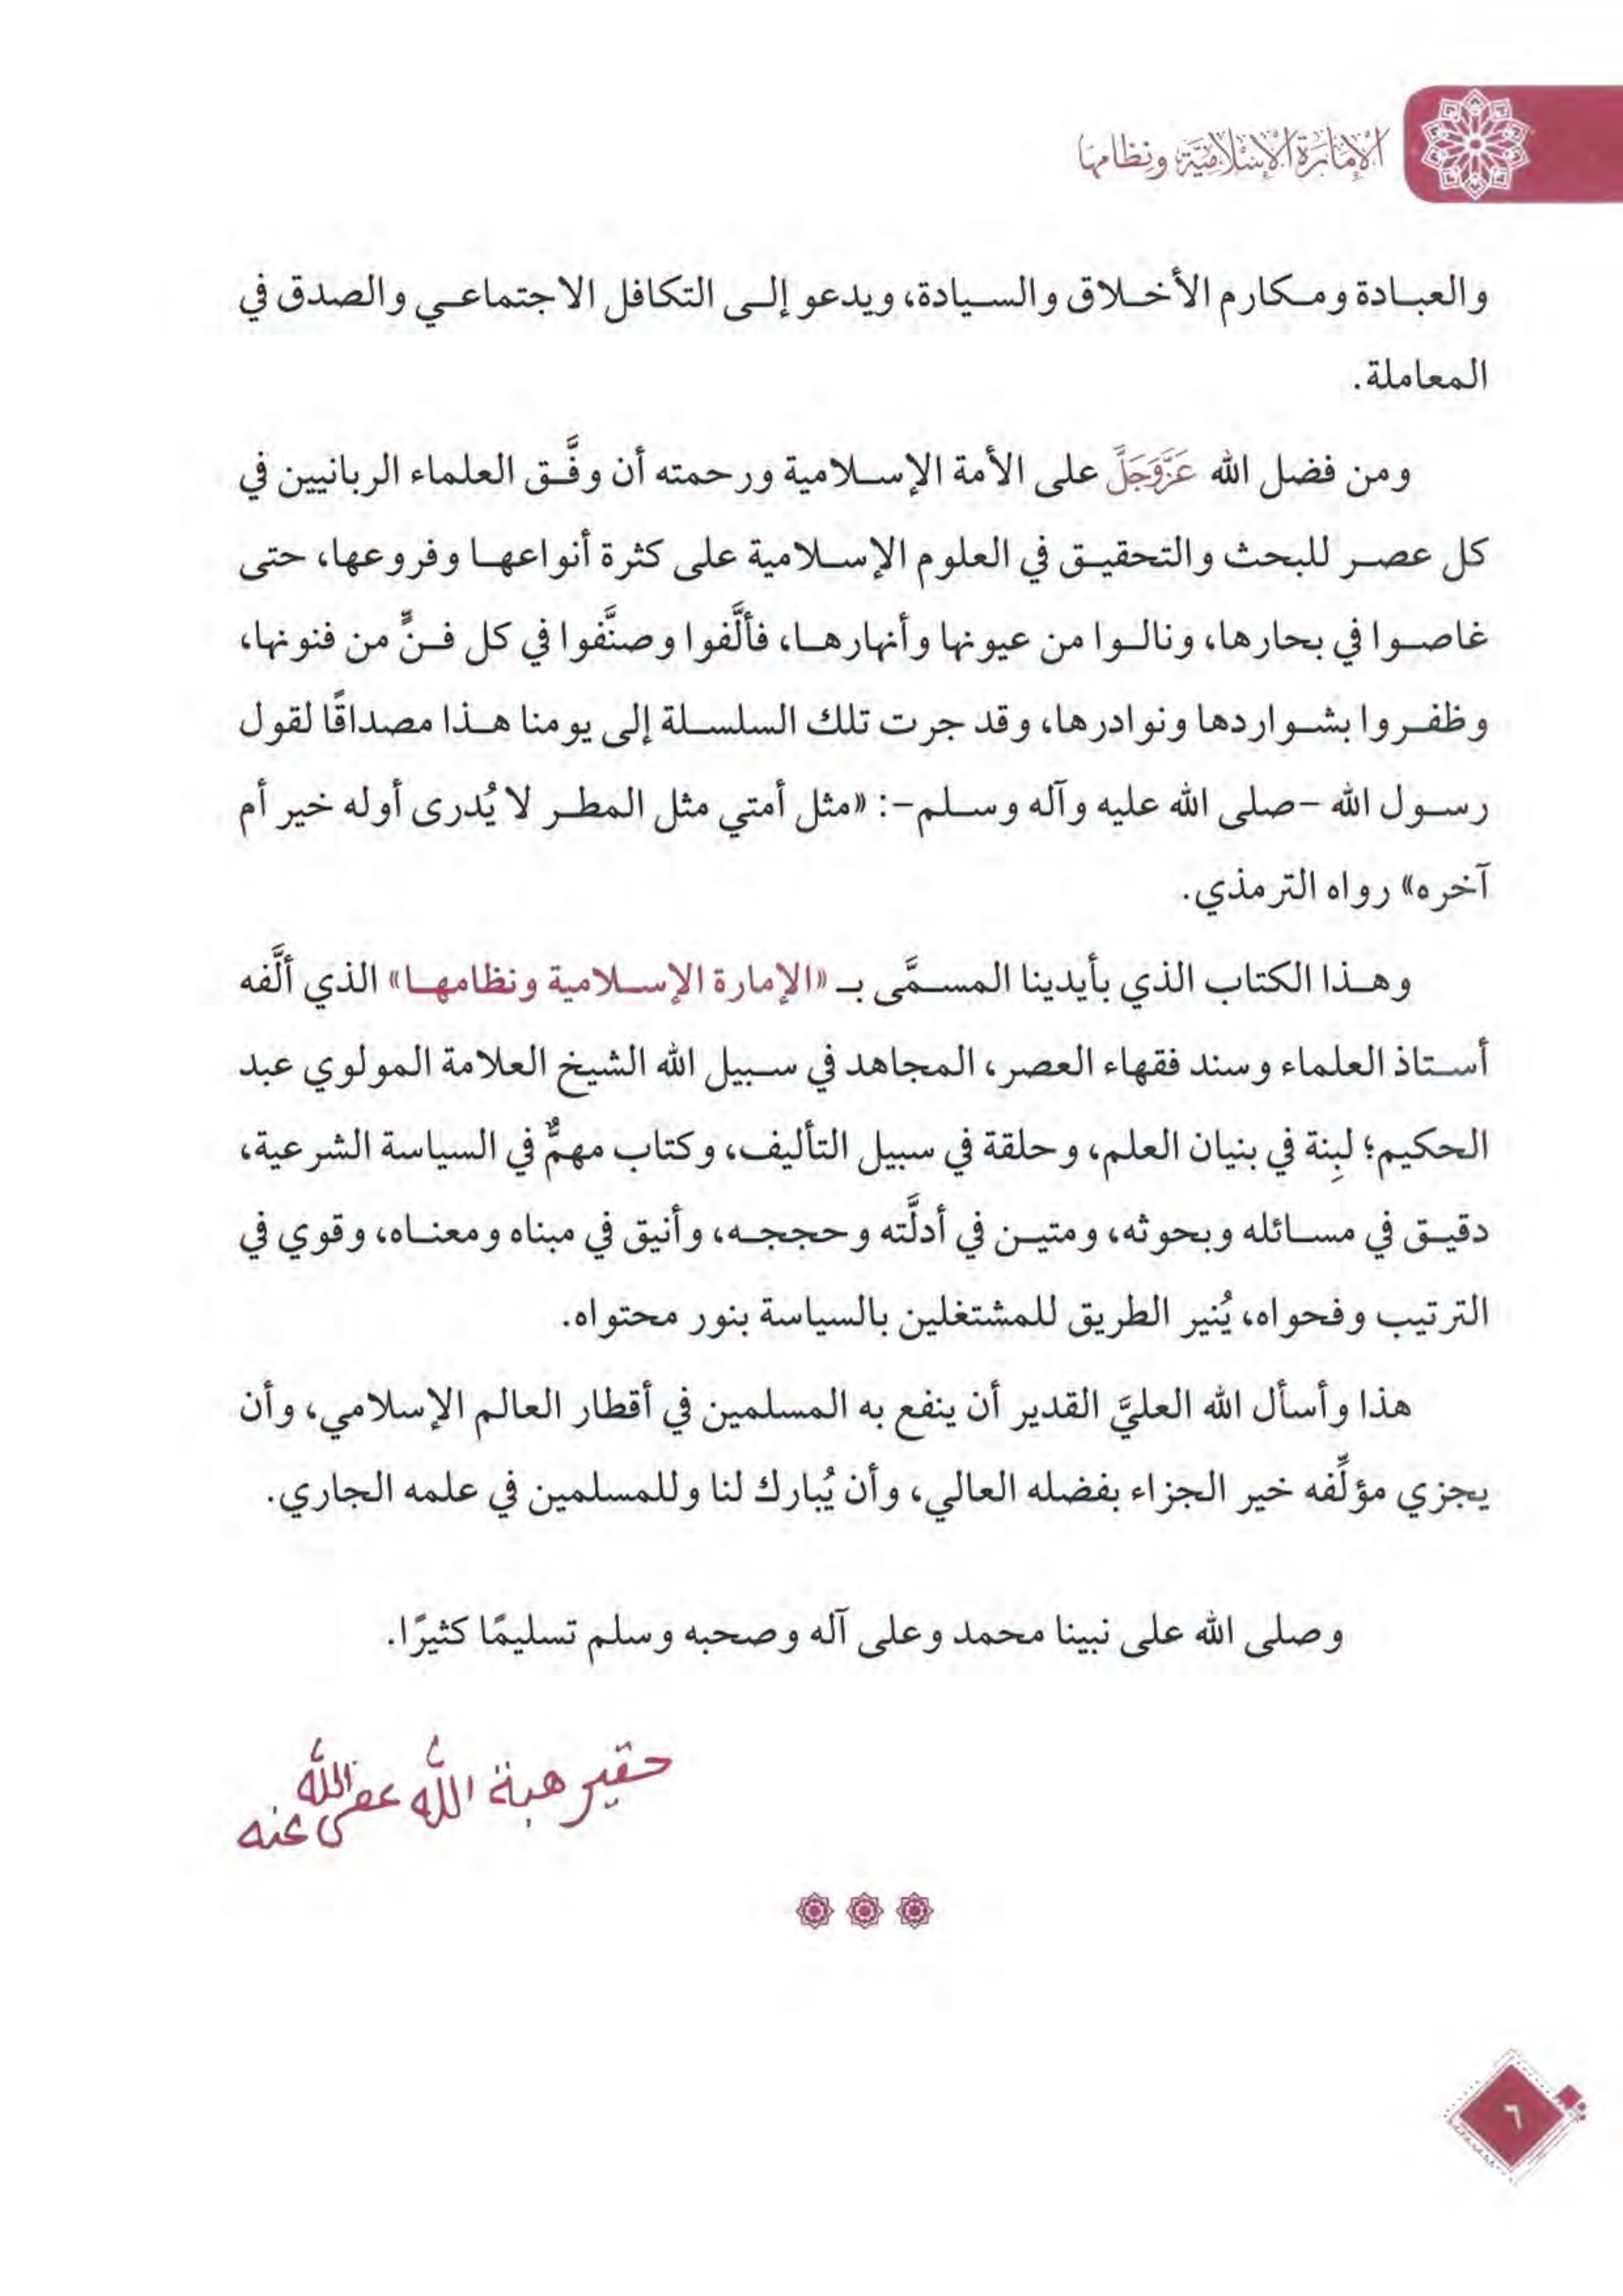 الإمارة الإسلامية ونظامها
والعبادة ومكارم الأخلاق والسيادة، ويدعو إلى التكافل الاجتماعي والصدق في
المعاملة.
ومن فضل الله عَزَّوَجَلَّ على الأمة الإسلامية ورحمته أن وفَّق العلماء الربانيين في
كل عصر للبحث والتحقيق في العلوم الإسلامية على كثرة أنواعها وفروعها، حتى
غاصوا في بحارها، ونالوا من عيونها وأنهارها، فألَّفوا وصنَّفوا في كل فنٍّ من فنونها،
وظفروا بشواردها ونوادرها، وقد جرت تلك السلسلة إلى يومنا هذا مصداقًا لقول
رسول الله -صلى الله عليه وآله وسلم-: «مثل أمتي مثل المطر لا يُدرى أوله خير أم
آخره» رواه الترمذي.
وهذا الكتاب الذي بأيدينا المسمَّى بـ «الإمارة الإسلامية ونظامها» الذي ألَّفه
أستاذ العلماء وسند فقهاء العصر، المجاهد في سبيل الله الشيخ العلامة المولوي عبد
الحكيم؛ لبِنة في بنيان العلم، وحلقة في سبيل التأليف، وكتاب مهمٌّ في السياسة الشرعية،
دقيق في مسائله وبحوثه، ومتين في أدلَّته وحججه، وأنيق في مبناه ومعناه، وقوي في
الترتيب وفحواه، يُنير الطريق للمشتغلين بالسياسة بنور محتواه.
هذا وأسأل الله العليَّ القدير أن ينفع به المسلمين في أقطار العالم الإسلامي، وأن
يجزي مؤلِّفه خير الجزاء بفضله العالي، وأن يُبارك لنا وللمسلمين في علمه الجاري.
وصلى الله على نبينا محمد وعلى آله وصحبه وسلم تسليمًا كثيرًا.
حقير هبة الله عفى الله عنه
٦